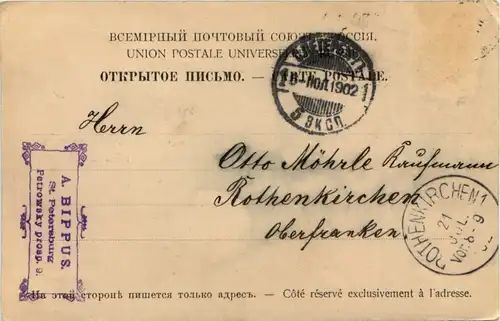 ВСЕМІРНЫЙ ПОЧТОВЫЙ СОЮЗ. РОССІЯ.
UNION POSTALE UNIVERSELLE.
ОТКРЫТОЕ ПИСЬМО. — CARTE POSTALE.
8-ІЮЛ.1902
5 ЭКСП.
Herrn
Otto Möhrle Kaufmann
Rothenkirchen
Oberfranken
ROTHENKIRCHEN 1
21
JUL
Vor. 8-9
A. BIPPUS.
St. Petersburg
Petrowsky prosp. 9.
На этой сторонѣ пишется только адресъ. — Côté réservé exclusivement à l'adresse.